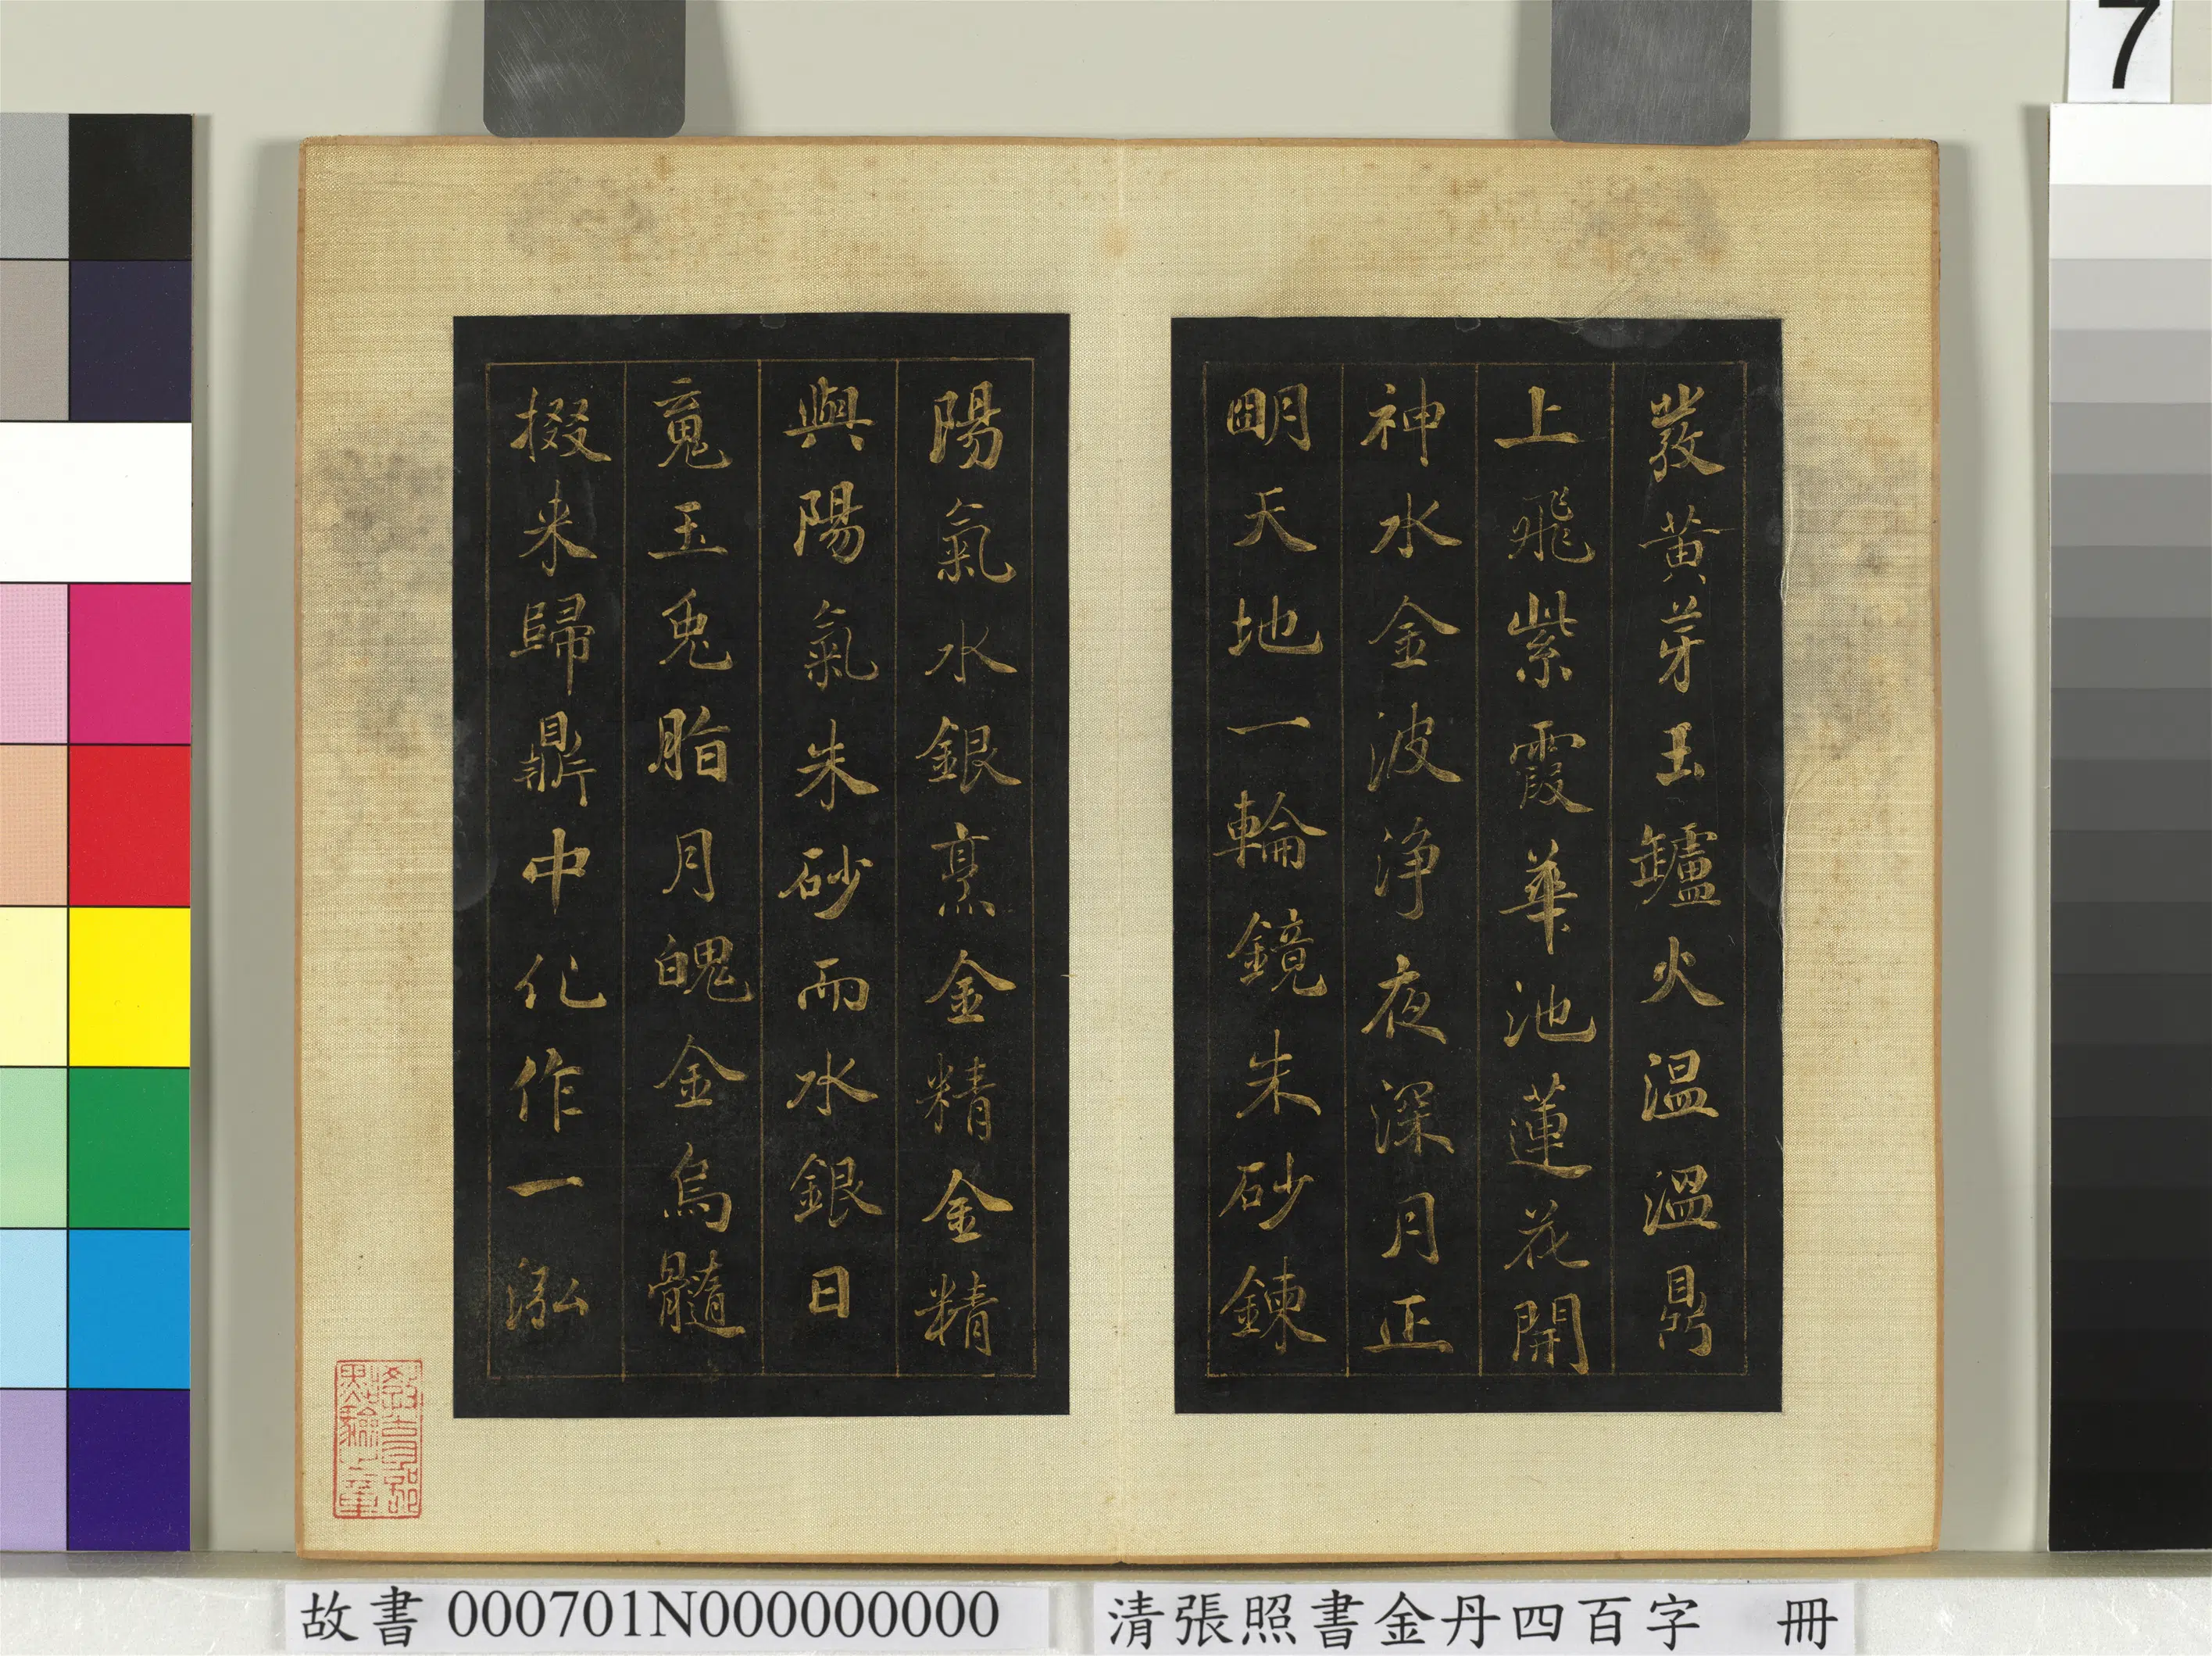 7
蕟黄芽玉罏火温温鼎
上飛紫霞華池蓮花開
神水金波浄夜深月正
明天地一輪鏡朱砂鍊
陽氣水銀烹金精金精
與陽氣朱砂而水銀日
䰟玉兎脂月魄金烏髓
掇来歸鼎中化作一泓
教育部點驗之章
故書 000701N000000000
清張照書金丹四百字 冊